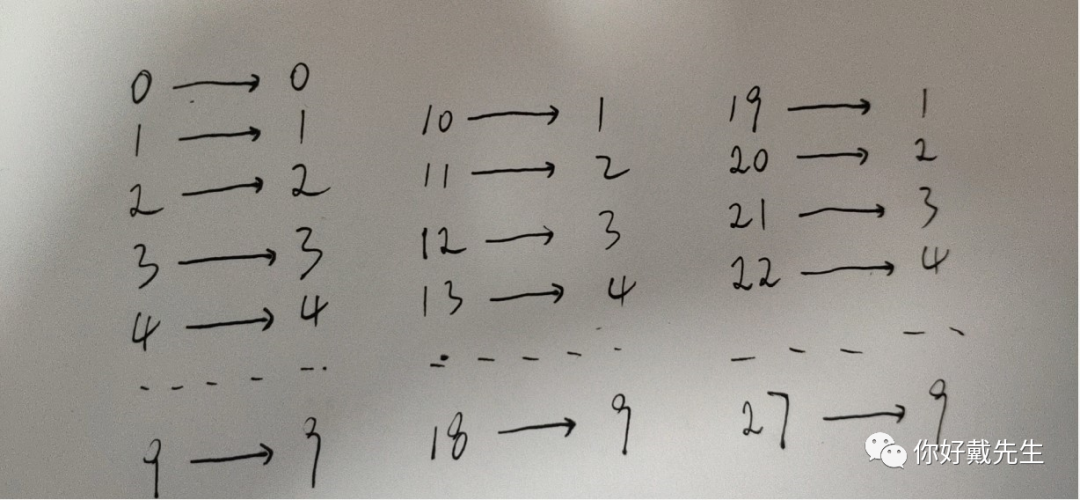 0 → 0
1 → 1
2 → 2
3 → 3
4 → 4
9 → 9
10 → 1
11 → 2
12 → 3
13 → 4
18 → 9
19 → 1
20 → 2
21 → 3
22 → 4
27 → 9
你好戴先生